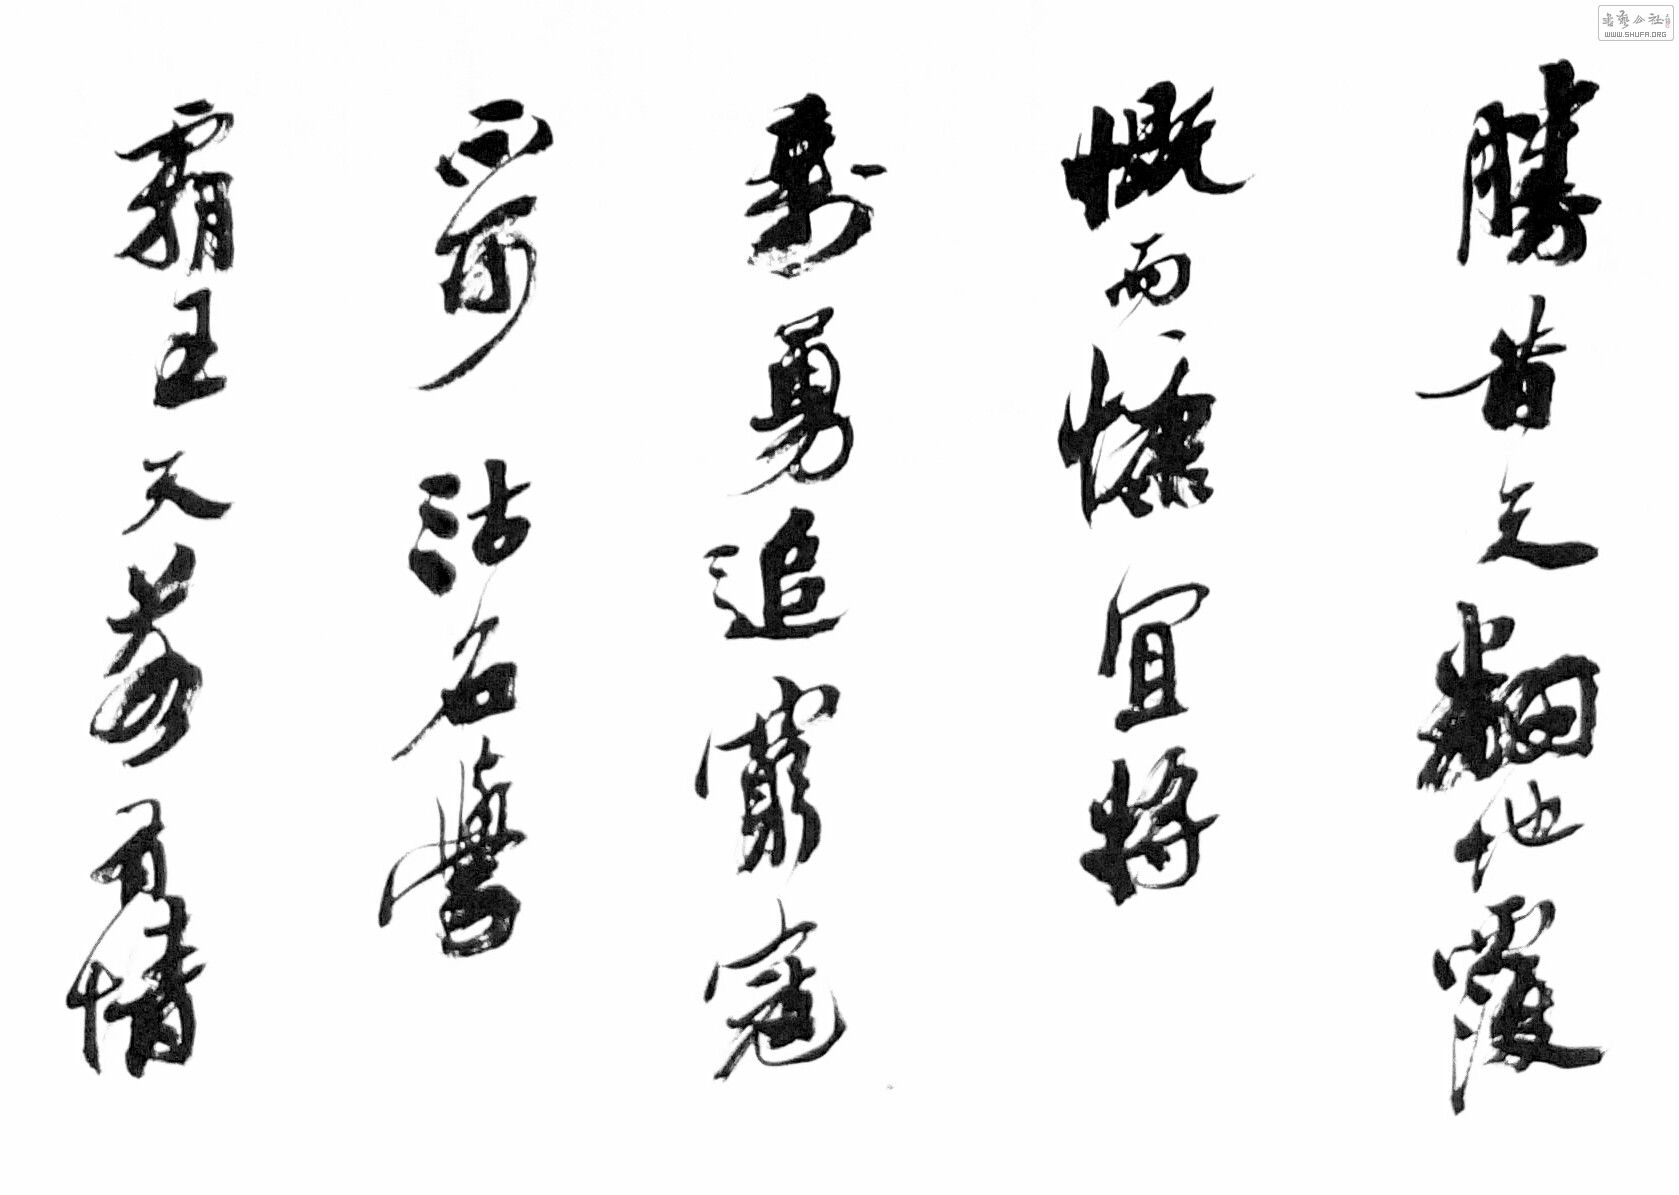 勝昔天翻地覆
慨而慷宜將
剩勇追窮寇
不可沽名學
霸王天若有情
書藝公社
WWW.SHUFA.ORG